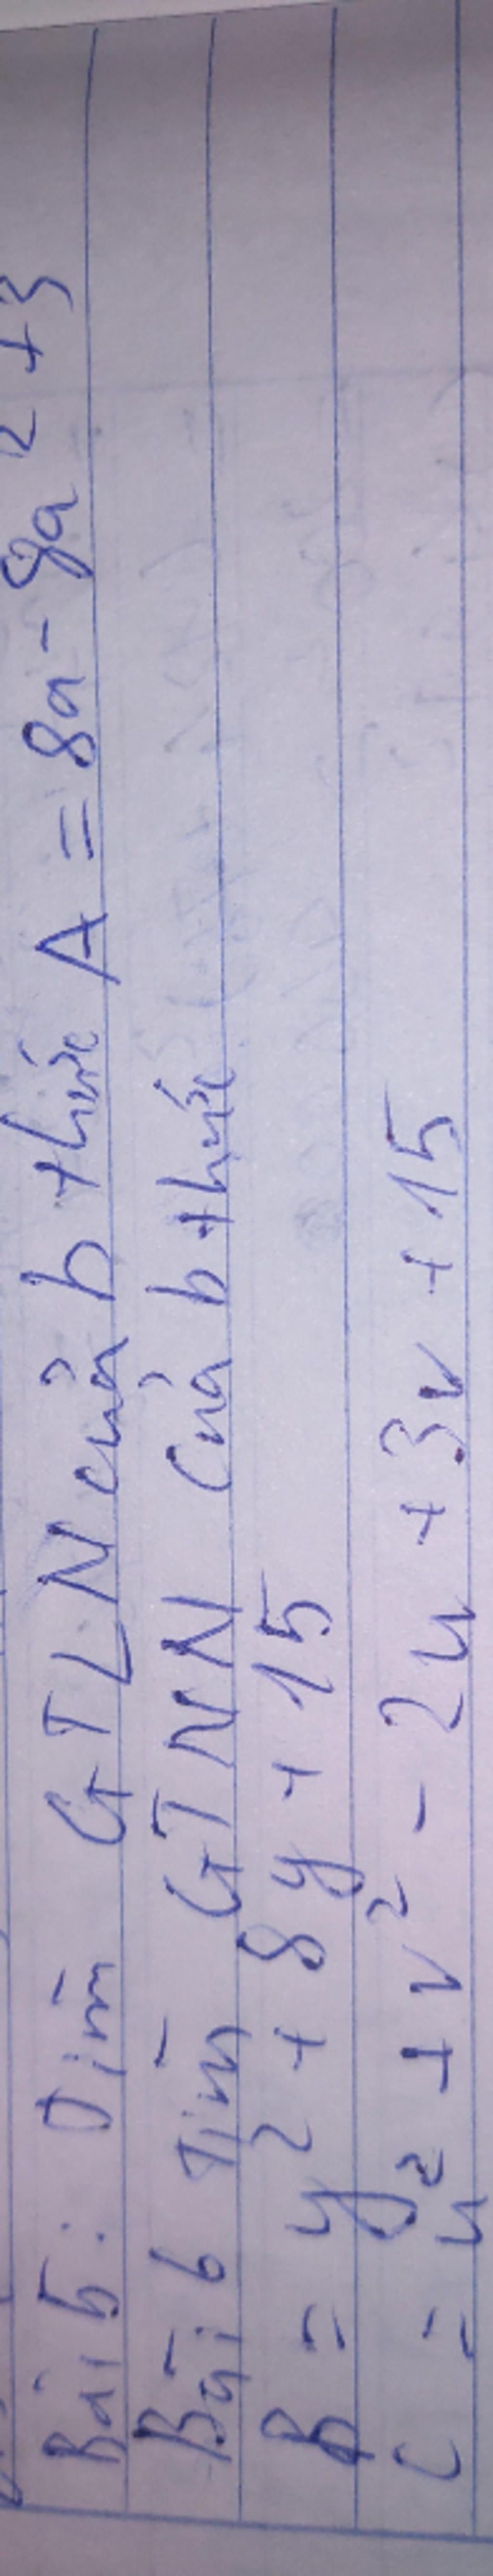 Bài 5: Dìm GTLN của b thức A = 8a - 8a² + 3
Bài 6 Tìm GTNN của b thức
B = y² + 8y + 15
C = u² + v² - 2u + 3v + 15